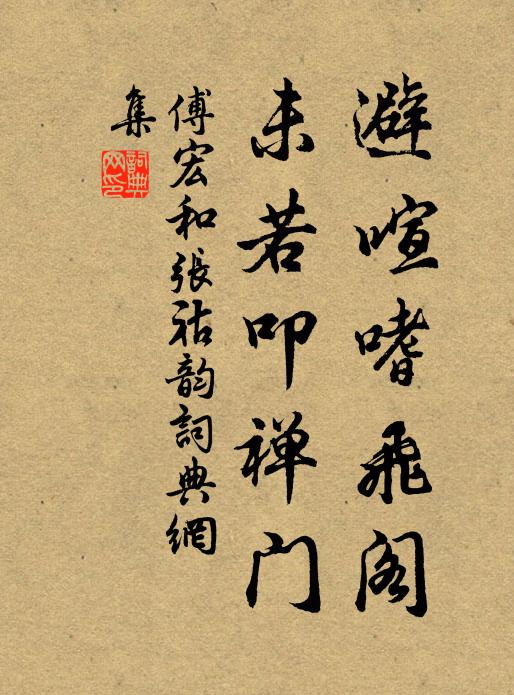 避喧嗜飛阁
未若叩禅门
傅宏和張祜韵詞典網
集
詞典网印